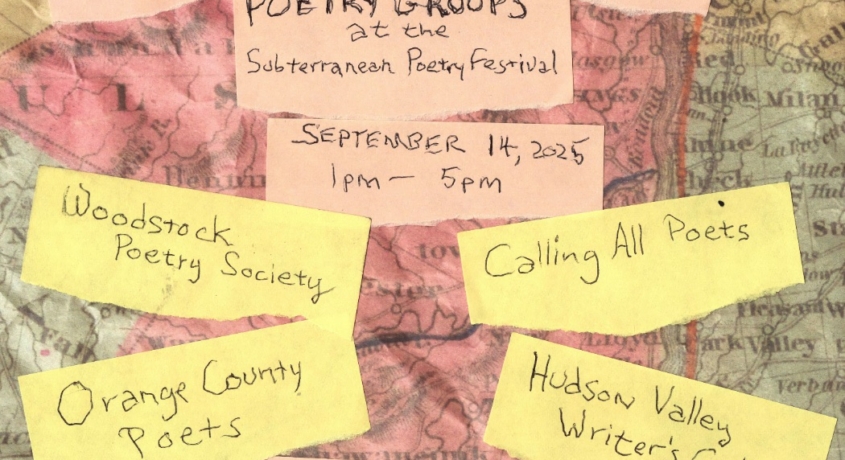 POETRY GROUPS
at the
Subterranean Poetry Festival
SEPTEMBER 14, 2025
1pm — 5pm
Woodstock
Poetry Society
Calling All Poets
Orange County
Poets
Hudson Valley
Writer's
U L S
Glasgow
Red
Hook
Milan
La Fayette
Pleasant
Lloyd
Park Valley